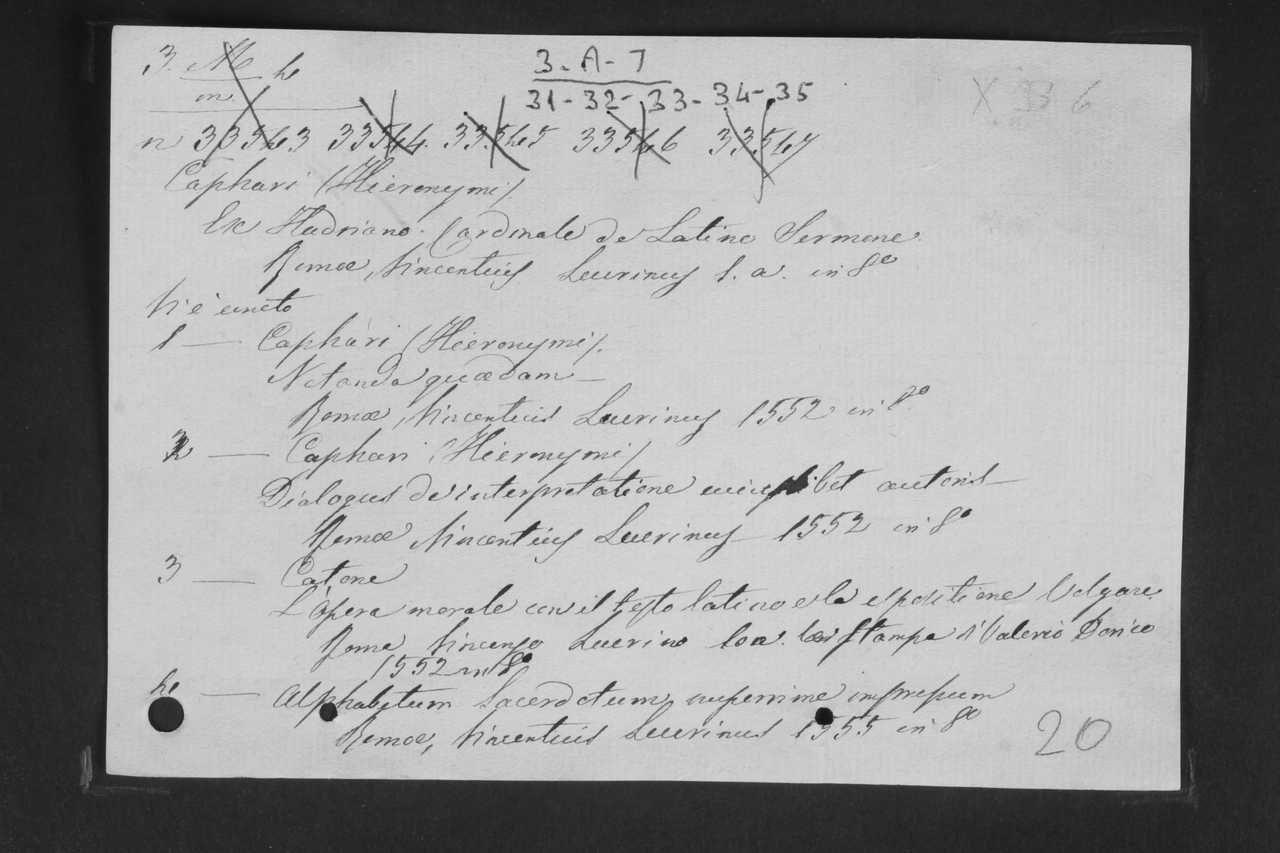 3. M h
m
3-A-7
31-32-33-34-35
X 33 6
n 33543 33544. 33545 33546 33547
Caphari (Hieronymi).
Ex Hadriano Cardinale de Latino Sermone.
Romæ, Vincentius Lucrinus s. a. in 8º
Vi è uncto
1 — Caphari (Hieronymi).
Notanda quædam —
Romæ, Vincentius Lucrinus 1552 in 8º
2 — Caphari (Hieronymi)
Dialogus de interpretatione cuiuslibet autoris —
Romæ Vincentius Lucrinus 1552 in 8º
3 — Catone
L'opera morale con il testo latino e la espositione Volgare.
Roma Vincenzo Lucrino stampa di Valerio Dorico
1552 in 8º
4 — Alphabetum Sacerdotum nuperrime impressum
Romæ, Vincentius Lucrinus 1555 in 8º
20